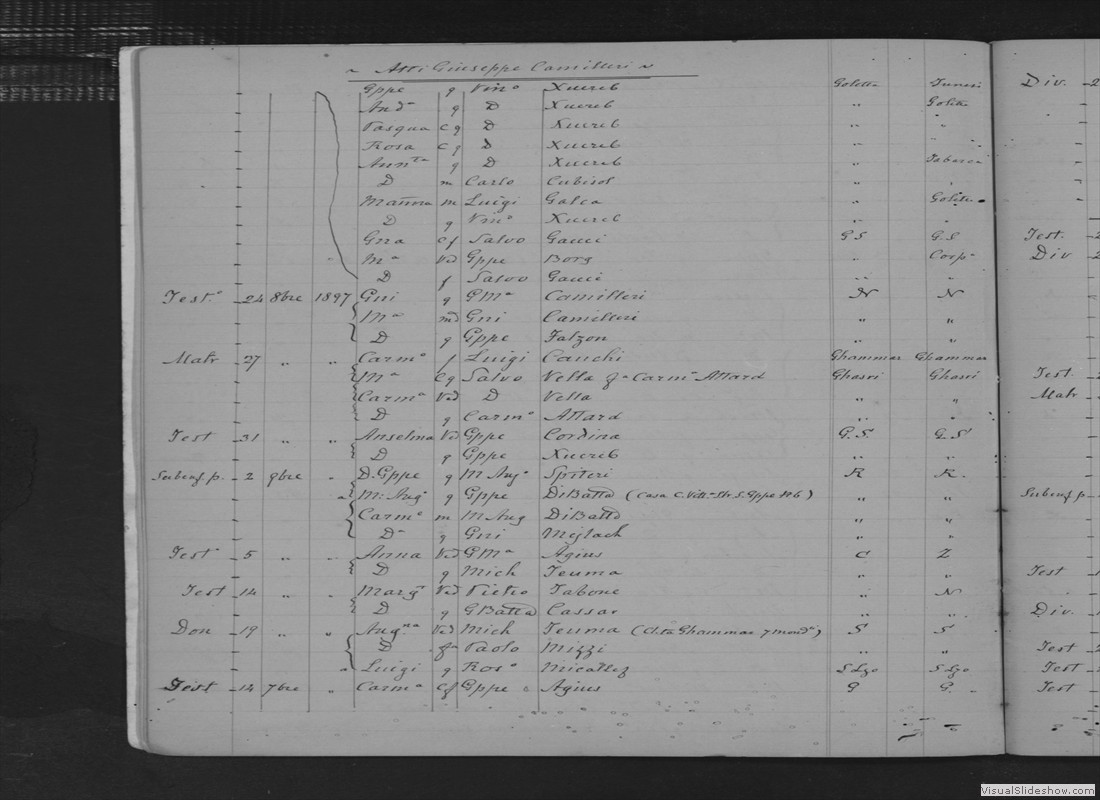 ~ Atti Giuseppe Camilleri ~
Gppe q Vinᵒ Xuereb Goletta Tunesi Div. 2
Andᵃ q D Xuereb " Goletta
Pasqua C q D Xuereb " "
Rosa C q D Xuereb " "
Annᵗᵃ q D Xuereb " Tabarca
D m Carlo Cubisol " "
m Luigi Galea " Goletta
D q Vinᵒ Xuereb " "
Gna C f Salvo Gauci G S G. S Test. 2
Mᵃ Vᵈ Gppe Borg " Corpᵃ Div 2
D f Salvo Gauci " "
Test.ᵒ 24 8bre 1897 Gni q GMᵃ Camilleri N N
Mᵃ mᵈ Gni Camilleri " "
D q Gppe Falzon " "
Matr 27 " " Carmᵒ f Luigi Cauchi Ghammar Ghammar
Mᵃ C q Salvo Vella fᵃ Carmᵒ Attard Ghasri Ghasri Test.
Carmᵃ Vᵈ D Vella " " Matr
D q Carmᵒ Attard " "
Test 31 " " Anselina Vᵈ Gppe Cordina G. S. G. S
D q Gppe Xuereb " "
Subenf. p. 2 9bre " D. Gppe q M Augᵒ Spiteri K K.
" M. Augᵒ q Gppe DiBattᵃ ( Casa C. Vittᵃ Str S. Gppe ) " " Subenf p
Carmᵃ m M Aug DiBattᵃ " "
Dᵃ q Gni Mejlach " "
Test 5 " " Anna Vᵈ GMᵃ Agius C Z
D q Mich Teuma " " Test
Test 14 " " Margᵗ Vᵈ Pietro Tabone " N
D q GBatta Cassar " " Div.
Don 19 " " Augⁿᵃ Vᵈ Mich Teuma ( Ghammar 7 mondᵒ ) S S
D fᵃ Paolo Mizzi " " Test 2
" Luigi q Rosᵒ Micallef S Lzo S Lzo Test
Test 14 7bre " Carmᵃ C f Gppe Agius G G. Test
VisualSlideshow.com